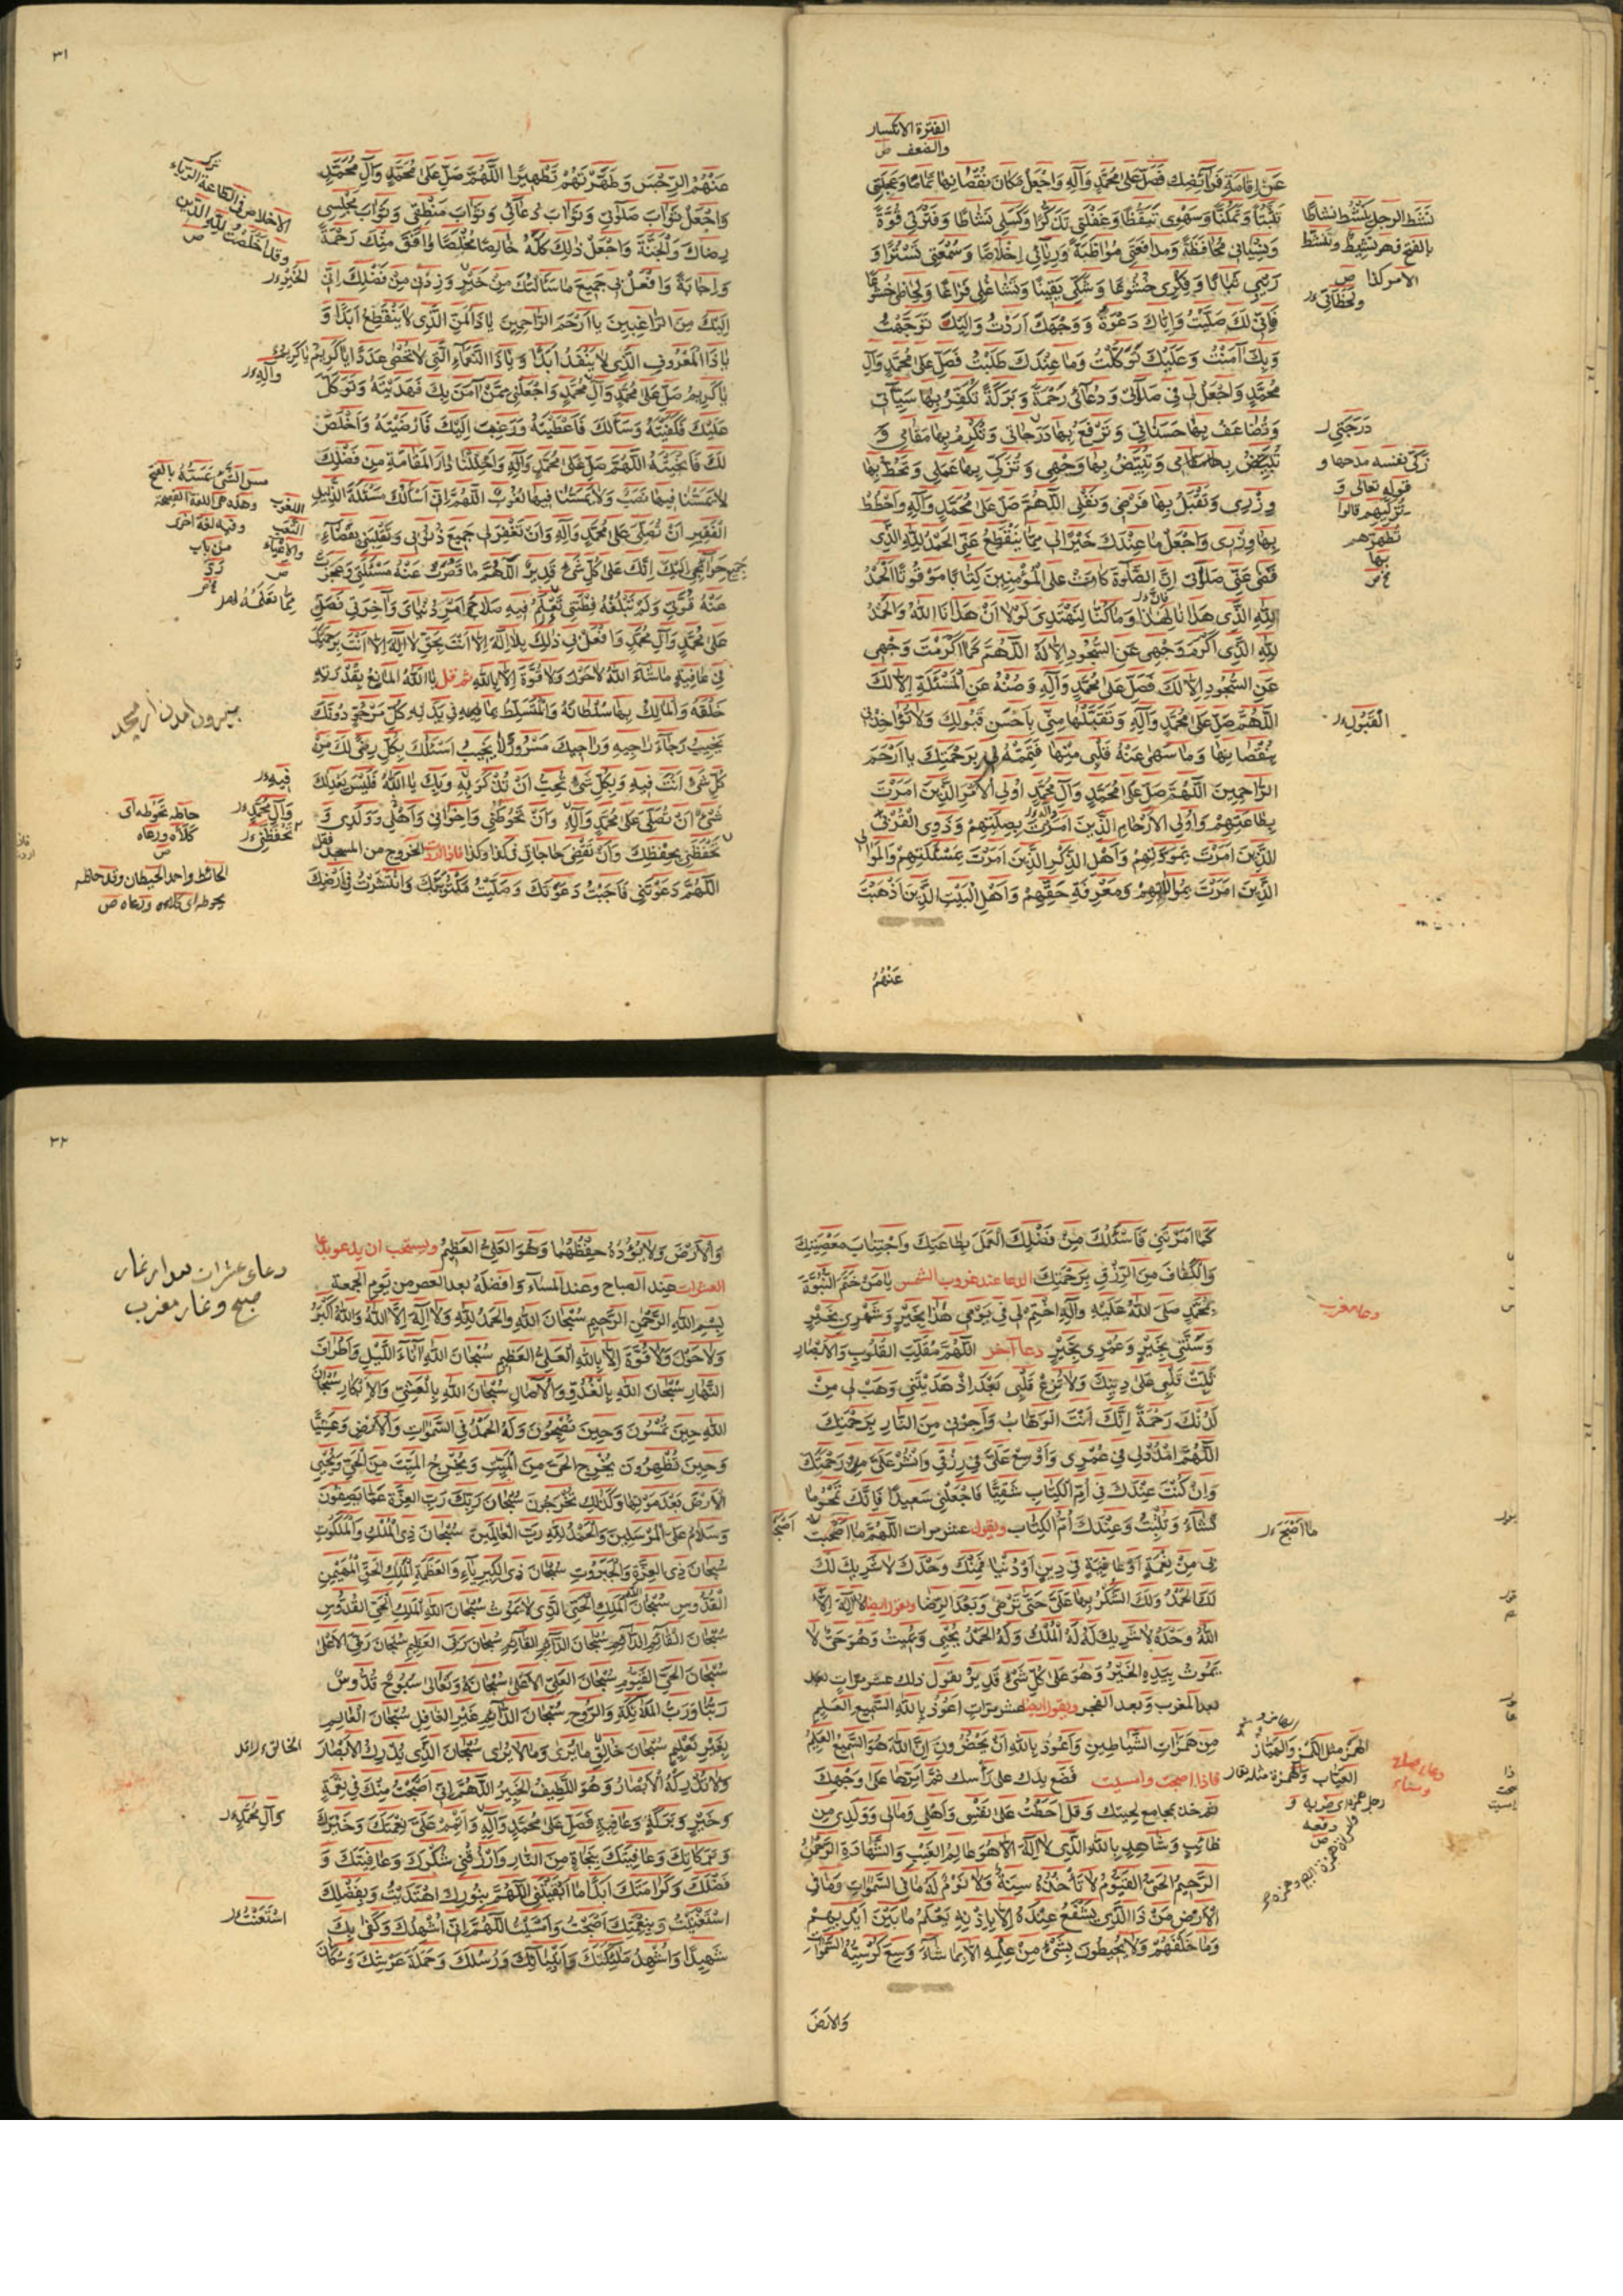 الفترة الانكسار
والضعف ص
عَنْ اِقامَةِ فَرآئِضِكَ فَصَلِّ عَلى مُحَمَّدٍ وَآلِهِ وَاجْعَلْ مَكانَ نُقْصانِها تَمامًا وَعَجَلَتي
تَثَبُّتًا وَتَمَكُّنًا وَسَهْوي تَيَقُّظًا وَغَفْلَتي تَذَكُّرًا وَكَسَلي نَشاطًا وَفَتْرَتي قُوَّةً
وَنِسْياني مُحافَظَةً وَمُدافَعَتي مُواظَبَةً وَرِيآئي اِخْلاصًا وَسُمْعَتي تَسَتُّرًا وَ
رَيْبي ثَباتًا وَفِكْري خُشُوعًا وَشَكّي يَقينًا وَتَشاغُلي فَراغًا وَلِحاظي خُشُوعًا
فَاِنّي لَكَ صَلَّيْتُ وَاِيّاكَ دَعَوْتُ وَوَجْهَكَ اَرَدْتُ وَاِلَيْكَ تَوَجَّهْتُ
وَبِكَ آمَنْتُ وَعَلَيْكَ تَوَكَّلْتُ وَما عِنْدَكَ طَلَبْتُ فَصَلِّ عَلى مُحَمَّدٍ وَآلِ
مُحَمَّدٍ وَاجْعَلْ لي في صَلاتي وَدُعآئي رَحْمَةً وَبَرَكَةً تُكَفِّرُ بِها سَيِّئاتي
وَتُضاعِفُ بِها حَسَناتي وَتَرْفَعُ بِها دَرَجاتي وَتُكْرِمُ بِها مَقامي وَ
تُبَيِّضُ بِها وَجْهي وَتُزَكّي بِها عَمَلي وَتَحُطُّ بِها
وِزْري وَتَقْبَلُ بِها فَرْضي وَنَفْلي اَللّهُمَّ صَلِّ عَلى مُحَمَّدٍ وَآلِهِ وَاحْطُطْ
بِها وِزْري وَاجْعَلْ ما عِنْدَكَ خَيْرًا لي مِمّا يَنْقَطِعُ عَنّي اَلْحَمْدُ لِلّهِ الَّذي
قَضى عَنّي صَلاتي اِنَّ الصَّلوةَ كانَتْ عَلَى الْمُؤْمِنينَ كِتابًا مَوْقُوتًا اَلْحَمْدُ
لِلّهِ الَّذي هَدانا لِهذا وَما كُنّا لِنَهْتَدِيَ لَوْلا اَنْ هَدانَا اللّهُ وَالْحَمْدُ
لِلّهِ الَّذي اَكْرَمَ وَجْهي عَنِ السُّجُودِ اِلّا لَهُ اَللّهُمَّ كَما اَكْرَمْتَ وَجْهي
عَنِ السُّجُودِ اِلّا لَكَ فَصَلِّ عَلى مُحَمَّدٍ وَآلِهِ وَصُنْهُ عَنِ الْمَسْئَلَةِ اِلّا لَكَ
اَللّهُمَّ صَلِّ عَلى مُحَمَّدٍ وَآلِهِ وَتَقَبَّلْها مِنّي بِاَحْسَنِ قَبُولِكَ وَلا تُؤاخِذْني
بِنُقْصانِها وَما سَهى عَنْهُ قَلْبي مِنْها فَتَمِّمْهُ لي بِرَحْمَتِكَ يا اَرْحَمَ
الرّاحِمينَ اَللّهُمَّ صَلِّ عَلى مُحَمَّدٍ وَآلِ مُحَمَّدٍ اُولِي الْاَمْرِ الَّذينَ اَمَرْتَ
بِطاعَتِهِمْ وَاُولِي الْاَرْحامِ الَّذينَ اَمَرْتَ بِصِلَتِهِمْ وَذَوِي الْقُرْبَى
الَّذينَ اَمَرْتَ بِمَوَدَّتِهِمْ وَاَهْلِ الذِّكْرِ الَّذينَ اَمَرْتَ بِمَسْئَلَتِهِمْ وَالْمَوالِي
الَّذينَ اَمَرْتَ بِمُوالاتِهِمْ وَمَعْرِفَةِ حَقِّهِمْ وَاَهْلِ الْبَيْتِ الَّذينَ اَذْهَبْتَ
عَنْهُمُ
نَشَط الرجل يَنْشَط نشاطًا
بالفتح فهو نشيط وتنشّط
الامر كذا ص
دَرَجَتي ر
زَكّى نفسه مدحها و
قوله تعالى وَ
تُزَكّيهِم قالوا
تُطَهِّرُهم
بها
الْقَبُولِ ر
٣١
عَنْهُمُ الرِّجْسَ وَطَهَّرْتَهُمْ تَطْهيرًا اَللّهُمَّ صَلِّ عَلى مُحَمَّدٍ وَآلِ مُحَمَّدٍ
وَاجْعَلْ ثَوابَ صَلاتي وَثَوابَ دُعآئي وَثَوابَ مَنْطِقي وَثَوابَ مَجْلِسي
رِضاكَ وَالْجَنَّةَ وَاجْعَلْ ذلِكَ كُلَّهُ خالِصًا مُخْلِصًا وافَقَ مِنْكَ رَحْمَةً
وَاِجابَةً وَافْعَلْ بي جَميعَ ما سَئَلْتُكَ مِنْ خَيْرٍ وَزِدْني مِنْ فَضْلِكَ اِنّي
اِلَيْكَ مِنَ الرّاغِبينَ يا اَرْحَمَ الرّاحِمينَ يا ذَا الْمَنِّ الَّذي لا يَنْقَطِعُ اَبَدًا وَ
يا ذَا الْمَعْرُوفِ الَّذي لا يَنْفَدُ اَبَدًا وَيا ذَا النَّعْمآءِ الَّتي لا تُحْصى عَدَدًا يا كَريمُ يا كَريمُ
يا كَريمُ صَلِّ عَلى مُحَمَّدٍ وَآلِ مُحَمَّدٍ وَاجْعَلْني مِمَّنْ آمَنَ بِكَ فَهَدَيْتَهُ وَتَوَكَّلَ
عَلَيْكَ فَكَفَيْتَهُ وَسَاَلَكَ فَاَعْطَيْتَهُ وَرَغِبَ اِلَيْكَ فَاَرْضَيْتَهُ وَاَخْلَصَ
لَكَ فَاَنْجَيْتَهُ اَللّهُمَّ صَلِّ عَلى مُحَمَّدٍ وَآلِهِ وَاَحْلِلْنا دارَ الْمُقامَةِ مِنْ فَضْلِكَ
لا يَمَسُّنا فيها نَصَبٌ وَلا يَمَسُّنا فيها لُغُوبٌ اَللّهُمَّ اِنّي اَسْاَلُكَ مَسْئَلَةَ الذَّليلِ
الْفَقيرِ اَنْ تُصَلِّيَ عَلى مُحَمَّدٍ وَآلِهِ وَاَنْ تَغْفِرَ لي جَميعَ ذُنُوبي وَتَقْلِبَني بِقَضآءِ
جَميعِ حَوآئِجي اِلَيْكَ اِنَّكَ عَلى كُلِّ شَيْءٍ قَديرٌ اَللّهُمَّ ما قَصُرَتْ عَنْهُ مَسْئَلَتي وَعَجَزَتْ
عَنْهُ قُوَّتي وَلَمْ تَبْلُغْهُ فِطْنَتي تَعْلَمُ فيهِ صَلاحَ اَمْرِ دُنْيايَ وَآخِرَتي فَصَلِّ
عَلى مُحَمَّدٍ وَآلِ مُحَمَّدٍ وَافْعَلْ بي ذلِكَ بِلا اِلهَ اِلّا اَنْتَ بِحَقِّ لا اِلهَ اِلّا اَنْتَ بِرَحْمَتِكَ
في عافِيَةٍ ما شآءَ اللّهُ لا حَوْلَ وَلا قُوَّةَ اِلّا بِاللّهِ ثم قل يا اَللّهُ الْمانِعُ بِقُدْرَتِهِ
خَلْقَهُ وَالْمالِكُ بِها سُلْطانَهُ وَالْمُتَسَلِّطُ بِما في يَدَيْهِ كُلُّ مَرْجُوٍّ دُونَكَ
يَخيبُ رَجآءُ راجيهِ وَراجيكَ مَسْرُورٌ لا يَخيبُ اَسْئَلُكَ بِكُلِّ رِضًى لَكَ مِنْ
كُلِّ شَيْءٍ اَنْتَ فيهِ وَبِكُلِّ شَيْءٍ تُحِبُّ اَنْ تُذْكَرَ بِهِ وَبِكَ يا اَللّهُ فَلَيْسَ يَعْدِلُكَ
شَيْءٌ اَنْ تُصَلِّيَ عَلى مُحَمَّدٍ وَآلِهِ وَاَنْ تَحُوطَني وَاِخْواني وَاَهْلي وَوَلَدي وَ
تَحْفَظَني بِحِفْظِكَ وَاَنْ تَقْضِيَ حاجاتي في كَذا وَكَذا فاذا اردت الخروج من المسجد فقل
اَللّهُمَّ دَعَوْتَني فَاَجَبْتُ دَعْوَتَكَ وَصَلَّيْتُ مَكْتُوبَتَكَ وَانْتَشَرْتُ في اَرْضِكَ
الاخلاص في الطاعة ترك الرياء
وقد اَخْلَصْتُ لِلّهِ الدّين
ص
الْخَيْرِ ر
وَآلِهِ ر
اللغوب
التعب
والاعياء
ص
بيرون آمدن از مسجد
فيهِ ر
وَآلِ مُحَمَّدٍ ر
تَحْفَظَني ر
حاطه يَحُوطه اى
كلأه ورعاه
ص
الحائط واحد الحيطان وقد حاطه
يحوطه اى كلأه ورعاه ص
كَما اَمَرْتَني فَاَسْئَلُكَ مِنْ فَضْلِكَ الْعَمَلَ بِطاعَتِكَ وَاجْتِنابَ مَعْصِيَتِكَ
وَالْكَفافَ مِنَ الرِّزْقِ بِرَحْمَتِكَ الدعا عند غروب الشمس يا مَنْ خَتَمَ النُّبُوَّةَ
بِمُحَمَّدٍ صَلَّى اللّهُ عَلَيْهِ وَآلِهِ اخْتِمْ لي في يَوْمي هذا بِخَيْرٍ وَشَهْري بِخَيْرٍ
وَسَنَتي بِخَيْرٍ وَعُمْري بِخَيْرٍ دعا آخر اَللّهُمَّ مُقَلِّبَ الْقُلُوبِ وَالْاَبْصارِ
ثَبِّتْ قَلْبي عَلى دينِكَ وَلا تُزِغْ قَلْبي بَعْدَ اِذْ هَدَيْتَني وَهَبْ لي مِنْ
لَدُنْكَ رَحْمَةً اِنَّكَ اَنْتَ الْوَهّابُ وَاَجِرْني مِنَ النّارِ بِرَحْمَتِكَ
اَللّهُمَّ امْدُدْ لي في عُمْري وَاَوْسِعْ عَلَيَّ في رِزْقي وَانْشُرْ عَلَيَّ مِنْ رَحْمَتِكَ
وَاِنْ كُنْتُ عِنْدَكَ في اُمِّ الْكِتابِ شَقِيًّا فَاجْعَلْني سَعيدًا فَاِنَّكَ تَمْحُو ما
تَشآءُ وَتُثْبِتُ وَعِنْدَكَ اُمُّ الْكِتابِ ويقول عشر مرات اَللّهُمَّ ما اَصْبَحَتْ
بي مِنْ نِعْمَةٍ اَوْ عافِيَةٍ في دينٍ اَوْ دُنْيا فَمِنْكَ وَحْدَكَ لا شَريكَ لَكَ
لَكَ الْحَمْدُ وَلَكَ الشُّكْرُ بِها عَلَيَّ حَتّى تَرْضى وَبَعْدَ الرِّضا ويقول ايضا لا اِلهَ اِلَّا
اللّهُ وَحْدَهُ لا شَريكَ لَهُ لَهُ الْمُلْكُ وَلَهُ الْحَمْدُ يُحْيي وَيُميتُ وَهُوَ حَيٌّ لا
يَمُوتُ بِيَدِهِ الْخَيْرُ وَهُوَ عَلى كُلِّ شَيْءٍ قَديرٌ يقول ذلك عشر مرات
بعد المغرب وبعد الفجر ويقول ايضا عشر مرات اَعُوذُ بِاللّهِ السَّميعِ الْعَليمِ
مِنْ هَمَزاتِ الشَّياطينِ وَاَعُوذُ بِاللّهِ اَنْ يَحْضُرُونِ اِنَّ اللّهَ هُوَ السَّميعُ الْعَليمُ
فاذا اصبحت وامسيت فَضَع يدك على رأسك ثمّ اَمِرَّها على وجهك
ثم خذ بمجامع لحيتك وقل اَحَطْتُ عَلى نَفْسي وَاَهْلي وَمالي وَوَلَدي مِنْ
غائِبٍ وَشاهِدٍ بِاللّهِ الَّذي لا اِلهَ اِلّا هُوَ عالِمُ الْغَيْبِ وَالشَّهادَةِ الرَّحْمنُ
الرَّحيمُ الْحَيُّ الْقَيُّومُ لا تَأْخُذُهُ سِنَةٌ وَلا نَوْمٌ لَهُ ما فِي السَّمواتِ وَما فِي
الْاَرْضِ مَنْ ذَا الَّذي يَشْفَعُ عِنْدَهُ اِلّا بِاِذْنِهِ يَعْلَمُ ما بَيْنَ اَيْديهِمْ
وَما خَلْفَهُمْ وَلا يُحيطُونَ بِشَيْءٍ مِنْ عِلْمِهِ اِلّا بِما شآءَ وَسِعَ كُرْسِيُّهُ السَّمواتِ
وَالْاَرْضَ
دعا مغرب
ما اَصْبَحَ ر
دعاء صباح
ومساء
٣٢
وَالْاَرْضَ وَلا يَؤُدُهُ حِفْظُهُما وَهُوَ الْعَلِيُّ الْعَظيمُ ويستحب ان يدعو بدعا
العشرات عند الصباح وعند المسآء وافضله بعد العصر من يوم الجمعة
بِسْمِ اللّهِ الرَّحْمنِ الرَّحيمِ سُبْحانَ اللّهِ وَالْحَمْدُ لِلّهِ وَلا اِلهَ اِلَّا اللّهُ وَاللّهُ اَكْبَرُ
وَلا حَوْلَ وَلا قُوَّةَ اِلّا بِاللّهِ الْعَلِيِّ الْعَظيمِ سُبْحانَ اللّهِ آنآءَ اللَّيْلِ وَاَطْرافَ
النَّهارِ سُبْحانَ اللّهِ بِالْغُدُوِّ وَالْآصالِ سُبْحانَ اللّهِ بِالْعَشِيِّ وَالْاِبْكارِ سُبْحانَ
اللّهِ حينَ تُمْسُونَ وَحينَ تُصْبِحُونَ وَلَهُ الْحَمْدُ فِي السَّمواتِ وَالْاَرْضِ وَعَشِيًّا
وَحينَ تُظْهِرُونَ يُخْرِجُ الْحَيَّ مِنَ الْمَيِّتِ وَيُخْرِجُ الْمَيِّتَ مِنَ الْحَيِّ وَيُحْيِي
الْاَرْضَ بَعْدَ مَوْتِها وَكَذلِكَ تُخْرَجُونَ سُبْحانَ رَبِّكَ رَبِّ الْعِزَّةِ عَمّا يَصِفُونَ
وَسَلامٌ عَلَى الْمُرْسَلينَ وَالْحَمْدُ لِلّهِ رَبِّ الْعالَمينَ سُبْحانَ ذِي الْمُلْكِ وَالْمَلَكُوتِ
سُبْحانَ ذِي الْعِزَّةِ وَالْجَبَرُوتِ سُبْحانَ ذِي الْكِبْرِيآءِ وَالْعَظَمَةِ الْمَلِكِ الْحَقِّ الْمُهَيْمِنِ
الْقُدُّوسِ سُبْحانَ اللّهِ الْمَلِكِ الْحَيِّ الَّذي لا يَمُوتُ سُبْحانَ اللّهِ الْمَلِكِ الْحَيِّ الْقُدُّوسِ
سُبْحانَ الْقآئِمِ الدّآئِمِ سُبْحانَ الدّآئِمِ الْقآئِمِ سُبْحانَ رَبِّيَ الْعَظيمِ سُبْحانَ رَبِّيَ الْاَعْلى
سُبْحانَ الْحَيِّ الْقَيُّومِ سُبْحانَ الْعَلِيِّ الْاَعْلى سُبْحانَهُ وَتَعالى سُبُّوحٌ قُدُّوسٌ
رَبُّنا وَرَبُّ الْمَلآئِكَةِ وَالرُّوحِ سُبْحانَ الدّآئِمِ غَيْرِ الْغافِلِ سُبْحانَ الْعالِمِ
بِغَيْرِ تَعْليمٍ سُبْحانَ خالِقِ ما يُرى وَما لا يُرى سُبْحانَ الَّذي يُدْرِكُ الْاَبْصارَ
وَلا تُدْرِكُهُ الْاَبْصارُ وَهُوَ اللَّطيفُ الْخَبيرُ اَللّهُمَّ اِنّي اَصْبَحْتُ مِنْكَ في نِعْمَةٍ
وَخَيْرٍ وَبَرَكَةٍ وَعافِيَةٍ فَصَلِّ عَلى مُحَمَّدٍ وَآلِهِ وَاَتْمِمْ عَلَيَّ نِعْمَتَكَ وَخَيْرَكَ
وَبَرَكاتِكَ وَعافِيَتَكَ بِنَجاةٍ مِنَ النّارِ وَارْزُقْني شُكْرَكَ وَعافِيَتَكَ وَ
فَضْلَكَ وَكَرامَتَكَ اَبَدًا ما اَبْقَيْتَني اَللّهُمَّ بِنُورِكَ اهْتَدَيْتُ وَبِفَضْلِكَ
اسْتَغْنَيْتُ وَبِنِعْمَتِكَ اَصْبَحْتُ وَاَمْسَيْتُ اَللّهُمَّ اِنّي اُشْهِدُكَ وَكَفى بِكَ
شَهيدًا وَاُشْهِدُ مَلآئِكَتَكَ وَاَنْبِيآئَكَ وَرُسُلَكَ وَحَمَلَةَ عَرْشِكَ وَسُكّانَ
دعاى عشرات بعد از نماز
صبح ونماز مغرب
وَآلِ مُحَمَّدٍ ر
اسْتَغَنْتُ ر